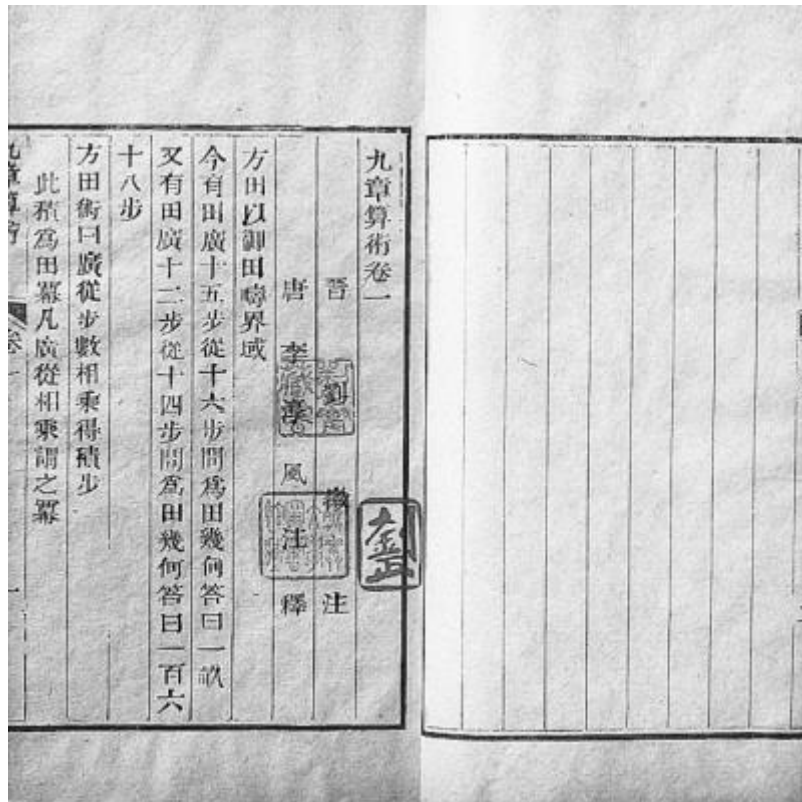 九章算術卷一
晉劉徽注
唐李淳風注釋
方田以御田疇界域
今有田廣十五步從十六步問為田幾何答曰一畝
又有田廣十二步從十四步問為田幾何答曰一百六
十八步
方田術曰廣從步數相乘得積步
此積為田冪凡廣從相乘謂之冪
九章算術
卷一